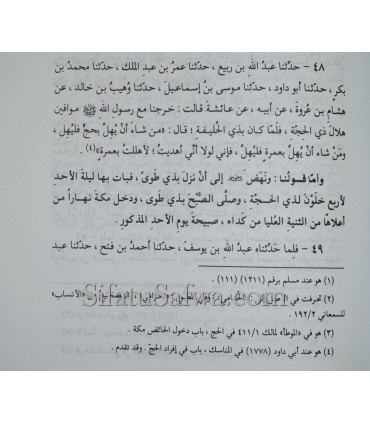 ٤٨ – حدّثنا عبدُ اللهِ بن ربيع، حدّثنا عمرُ بن عبدِ الملك، حدّثنا محمدُ بن
بكرٍ، حدّثنا أبو داود، حدّثنا موسى بنُ إسماعيلَ، حدّثنا وُهيبُ بن خالد، عن
هشامِ بن عُروةَ، عن أبيه، عن عائشةَ قالت: خرجنا مع رسولِ اللهِ ﷺ موافين
هلالَ ذي الحجّةِ، فلمّا كان بذي الحُليفةِ؛ قال: «من شاءَ أنْ يُهِلَّ بحجٍّ فليُهلَّ،
ومَنْ شاءَ أنْ يُهلَّ بعمرةٍ فليُهلَّ، فإني لولا أنّي أهديتُ؛ لأهللتُ بعمرةٍ»(٤).
وأمّا قولُنا: ونَهَضَ ﷺ إلى أنْ نزلَ بذي طُوى، فبات بها ليلةَ الأحدِ
لأربعٍ خلَوْنَ لذي الحجةِ، وصلّى الصُّبْحَ بذي طُوى، ودخل مكةَ نهاراً من
أعلاها من الثنيةِ العُليا من كَداء، صبيحةَ يومِ الأحدِ المذكورِ.
٤٩ – فلِما حَدَّثناه عبدُ اللهِ بن يوسفَ، حدّثنا أحمدُ بن فتح، حدّثنا عبد
(١) هو عند مسلم برقم (١٢١١) (١١١).
(٢) تحرفت في «الأنساب»
للسمعاني ١٩٢/٢.
(٣) هو في «الموطأ» لمالك ٤١١/١ في الحج، باب دخول الحائض مكة.
(٤) هو عند أبي داود (١٧٧٨) في المناسك، باب في إفراد الحج. وقد تقدم.
Sifatu-Safwa.com